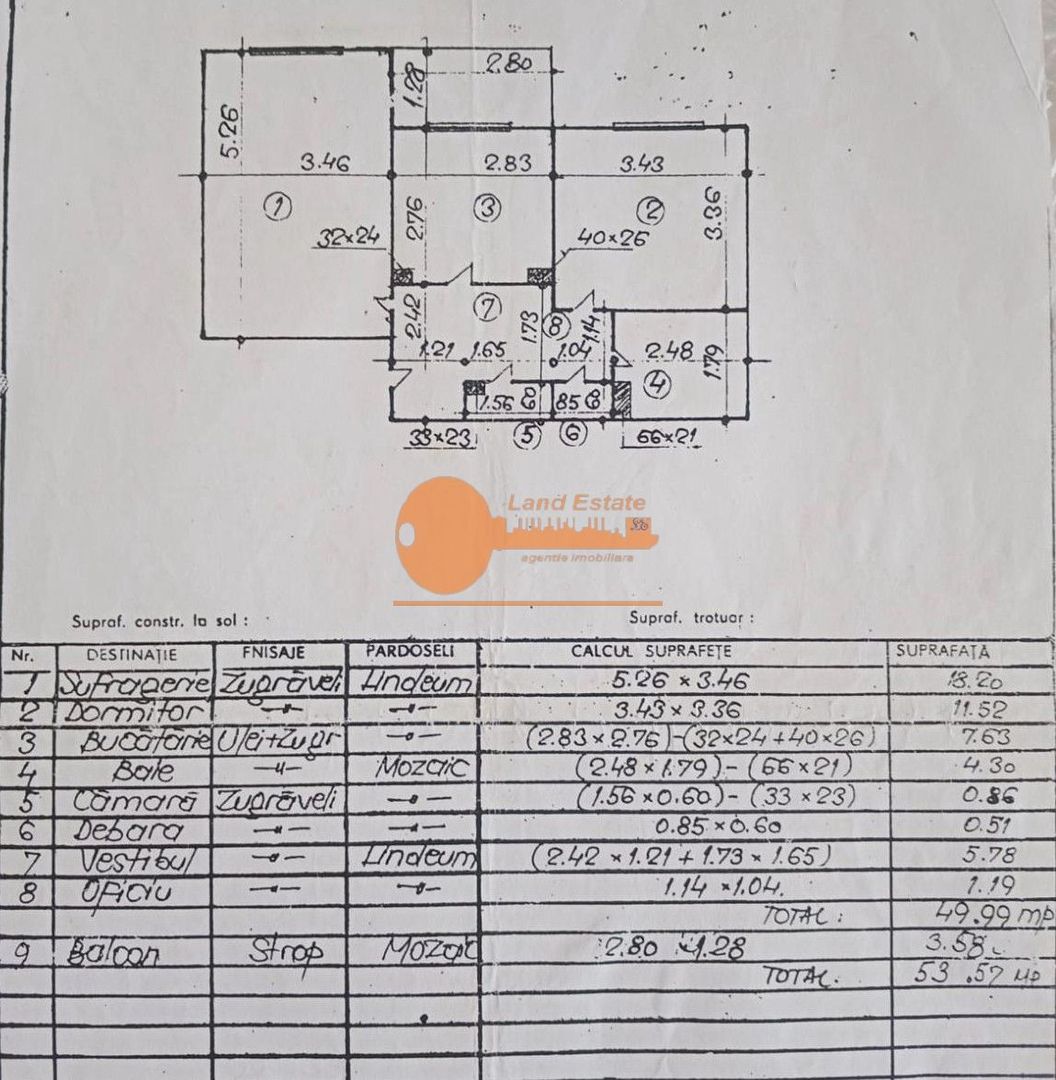 2.80
1.28
5.26
3.46
2.83
3.43
1
3
2
2.76
3.36
32×24
40×26
7
8
2.42
1.73
1.14
1.21
1.65
1.04
2.48
1.79
4
1.56
85
33×23
5
6
66×21
Land Estate
agentie imobiliara
Supraf. constr. la sol :
Supraf. trotuar :
Nr. DESTINAȚIE FNISAJE PARDOSELI CALCUL SUPRAFEȚE SUPRAFAȚA
1 Sufragerie Zugrăveli Linoleum 5.26 × 3.46 18.20
2 Dormitor —"— —"— 3.43 × 3.36 11.52
3 Bucătărie Ulei+Zugr —"— (2.83 × 2.76)-(32×24+40×26) 7.63
4 Baie —"— Mozaic (2.48 × 1.79) - (66 ×21) 4.30
5 Cămară Zugrăveli —"— (1.56 ×0.60) - (33 ×23) 0.86
6 Debara —"— —"— 0.85 × 0.60 0.51
7 Vestibul —"— Linoleum (2.42 × 1.21 + 1.73 × 1.65) 5.78
8 Oficiu —"— —"— 1.14 ×1.04. 1.19
TOTAL: 49.99 mp
9 Balcon Strop Mozaic 2.80 × 1.28 3.58
TOTAL. 53.57 mp